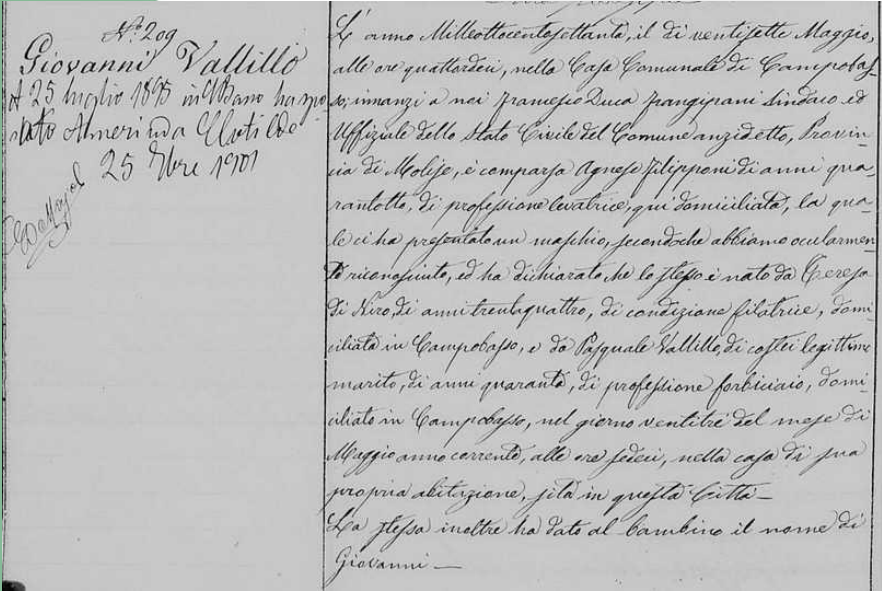 N.º 209
Giovanni Vallillo
Il 25 luglio 1895 in Milano ha spo
sato Amerinda Clotilde
25 9bre 1901
L'anno Milleottocentosettanta, il di ventisette Maggio,
alle ore quattordici, nella Casa Comunale di Campobas-
so; innanzi a noi Francesco Duca Frangipani Sindaco ed
Uffiziale dello Stato Civile del Comune anzidetto, Provin-
cia di Molise, è comparsa Agnese Filipponi di anni qua-
rantotto, di professione levatrice, qui domiciliata, la qua-
le ci ha presentato un maschio, secondoche abbiamo ocularmen-
te riconosciuto, ed ha dichiarato che lo stesso è nato da Teresa
di Niro, di anni trentaquattro, di condizione filatrice, domi-
ciliata in Campobasso, e da Pasquale Vallillo, di costei legittimo
marito, di anni quaranta, di professione forbiciaio, domi-
ciliato in Campobasso, nel giorno ventitrè del mese di
Maggio anno corrente, alle ore sedeci, nella casa di sua
propria abitazione, sita in questa Città—
La stessa inoltre ha dato al bambino il nome di
Giovanni—